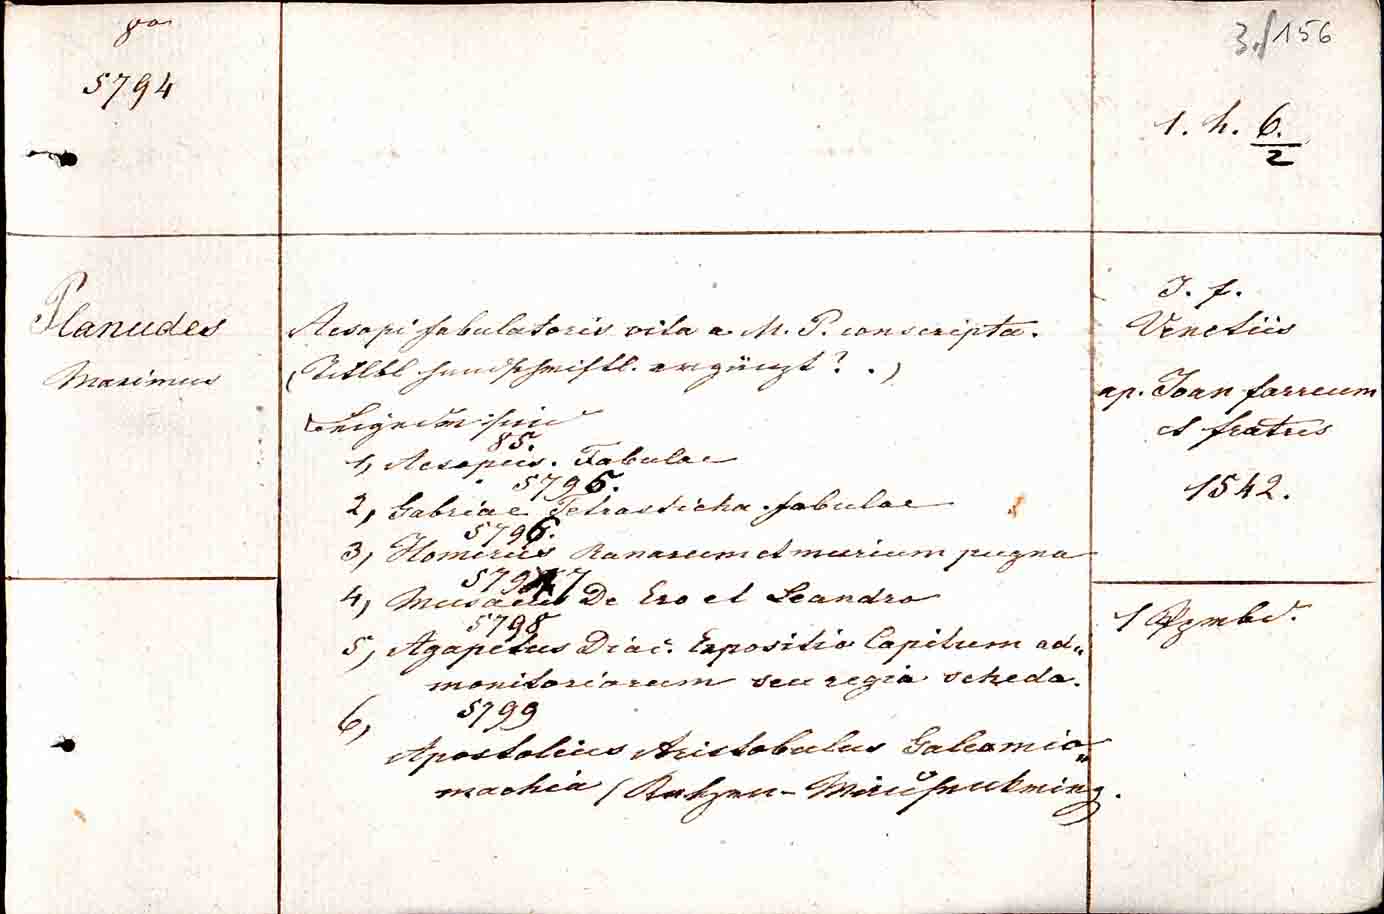 8vo
5794
3./156
1. h. 6.
2
Planudes
Maximus
Aesopi fabulatoris vita a M. P. conscripta.
(Titlbl handschriftl. ergänzt? .)
85.
1, Aesopus. Fabulae
5795.
2, Gabriae Tetrasticha fabulae
5796.
3, Homerus Ranarum et murium pugna
5797
4, Musaeus De Ero et Leandro
5798
5, Agapetus Diac. Expositio Capitum ad„
monitoriarum seu regia scheda.
5799
6,
Apostolius Aristobulus Galeomio„
machia (Katzen-Mäuse
I. f.
Venetiis
ap. Joan farreum
et fratres
1542.
1 Ppmbd.